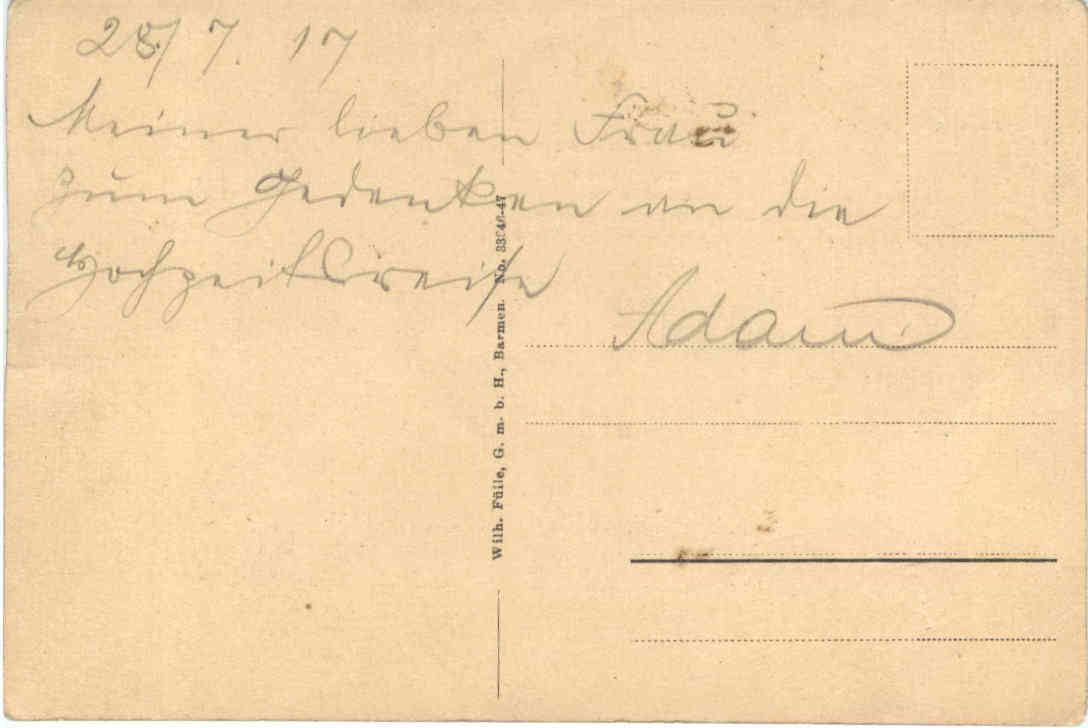 28/7. 17
Meiner lieben Frau
zum Gedenken an die
Hochzeitsreise
Adam
Wilh. Fülle, G. m. b. H., Barmen. No. 33946-47